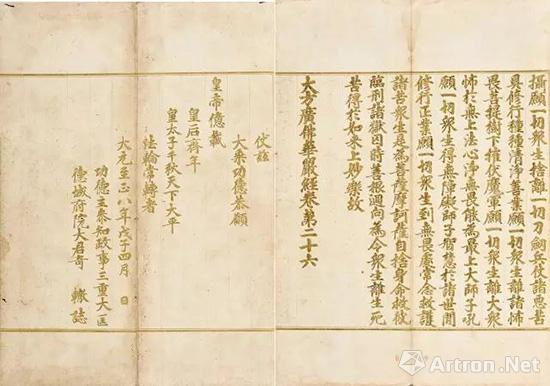 攝願一切衆生捨離一切刀劍兵仗諸惡苦
具修行種種清淨善業願一切衆生離諸怖
畏菩提樹下摧伏魔軍願一切衆生離大衆
怖於無上法心淨無畏能為最上大師子吼
願一切衆生得無障礙師子智慧於諸世間
修行正業願一切衆生到無畏處常念救護
諸苦衆生是為菩薩摩訶薩自捨身命救彼
臨刑諸獄囚時善根迴向為令衆生離生死
苦得於如来上妙樂故
大方廣佛華嚴経卷第二十六
伏茲
大乘功德恭願
皇帝億載
皇后齊年
皇太子千秋天下大平
法輪常轉者
大元至正八年戊子四月 日
功德主叅知政事三重大匡
德城府院大君奇 轍誌
Artron.Net